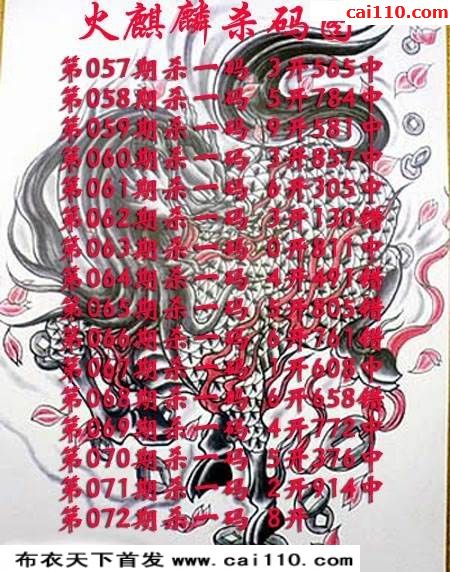 cai110.com
火麒麟杀码
第057期杀一码 3开565中
第058期杀一码 5开784中
第059期杀一码 9开581中
第060期杀一码 3开857中
第061期杀一码 6开305中
第062期杀一码 3开130错
第063期杀一码 0开811中
第064期杀一码 4开491错
第065期杀一码 5开805错
第066期杀一码 6开761错
第067期杀一码 1开608中
第068期杀一码 6开658错
第069期杀一码 4开772中
第070期杀一码 5开376中
第071期杀一码 2开914中
第072期杀一码 8开
布衣天下首发 www.cai110.com